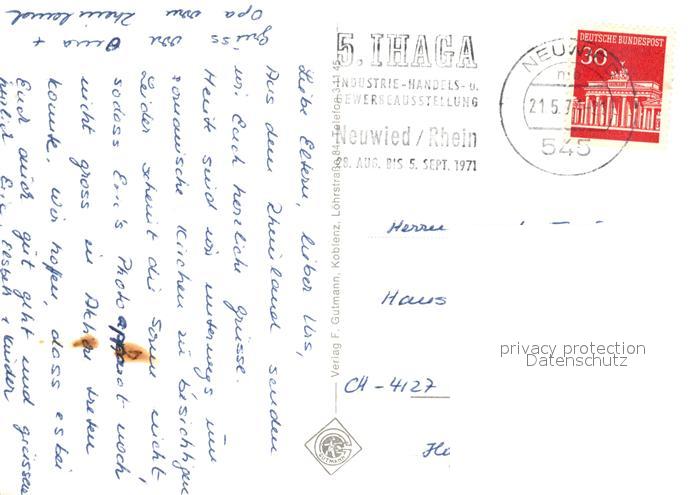 Liebe Eltern, lieber Urs,
Aus dem Rheinland senden
wir Euch herzliche Grüsse.
Heute sind wir unterwegs um
romanische Kirchen zu besichtigen
Leider scheint die Sonne nicht,
sodass Eric's Photoapparat noch
nicht gross in Aktion treten
konnte. Wir hoffen, dass es bei
Euch auch gut geht und grüssen
herzlich Eric, Elsbeth + Kinder
Gruss von Oma +
Opa vom Rheinland
Verlag F. Gutmann, Koblenz, Löhrstraße 84, Telefon 3 41 45
5. IHAGA
INDUSTRIE-HANDELS- U.
GEWERBEAUSSTELLUNG
Neuwied / Rhein
28. AUG. BIS 5. SEPT. 1971
NEUWIED
545
DEUTSCHE BUNDESPOST
30
Herrn
Hans
CH - 4127
GUTMANN
privacy protection
Datenschutz